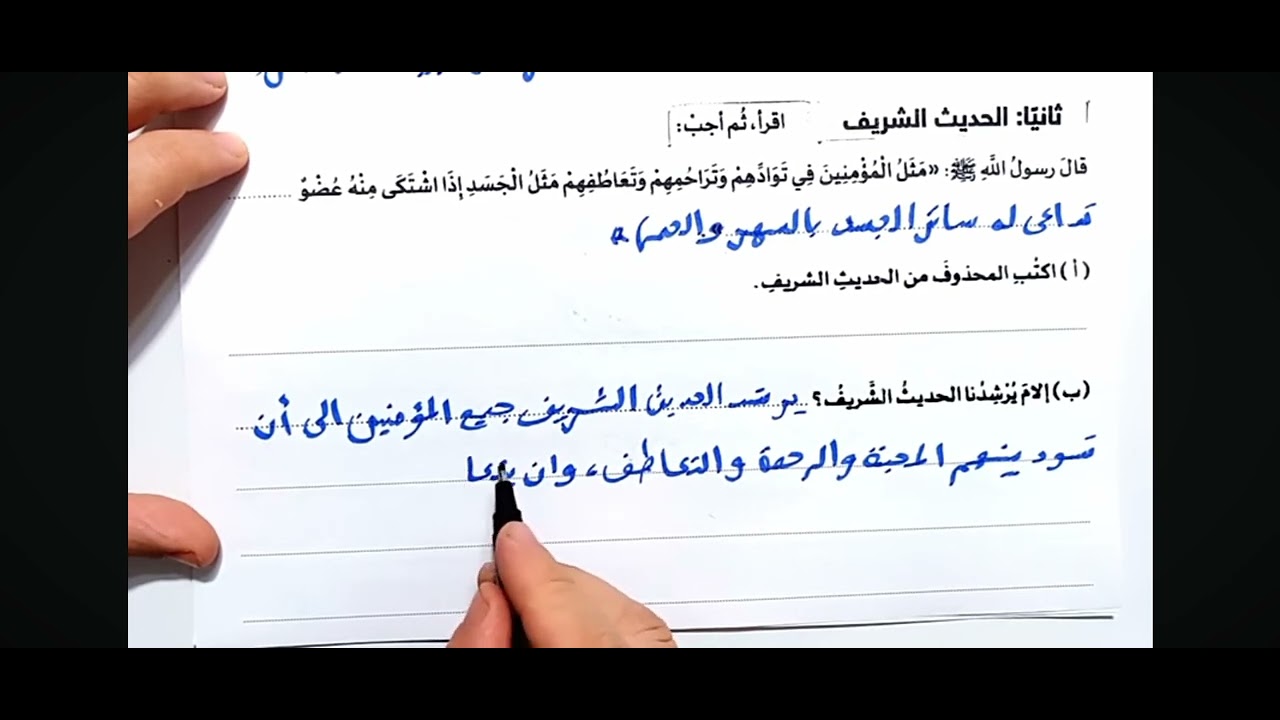 ثانيًا: الحديث الشريف اقرأ، ثُم أجبْ:
قالَ رسولُ اللَّهِ ﷺ: «مَثَلُ الْمُؤْمِنِينَ فِي تَوَادِّهِمْ وَتَرَاحُمِهِمْ وَتَعَاطُفِهِمْ مَثَلُ الْجَسَدِ إِذَا اشْتَكَى مِنْهُ عُضْوٌ
تداعى له سائر الجسد بالسهر والحمى
(أ) اكتُبِ المحذوفَ من الحديثِ الشريفِ.
(ب) إلامَ يُرْشِدُنا الحديثُ الشَّريفُ؟ يرشد الحديث الشريف جميع المؤمنين الى أن
تسود بينهم المحبة والرحمة والتعاطف، وان